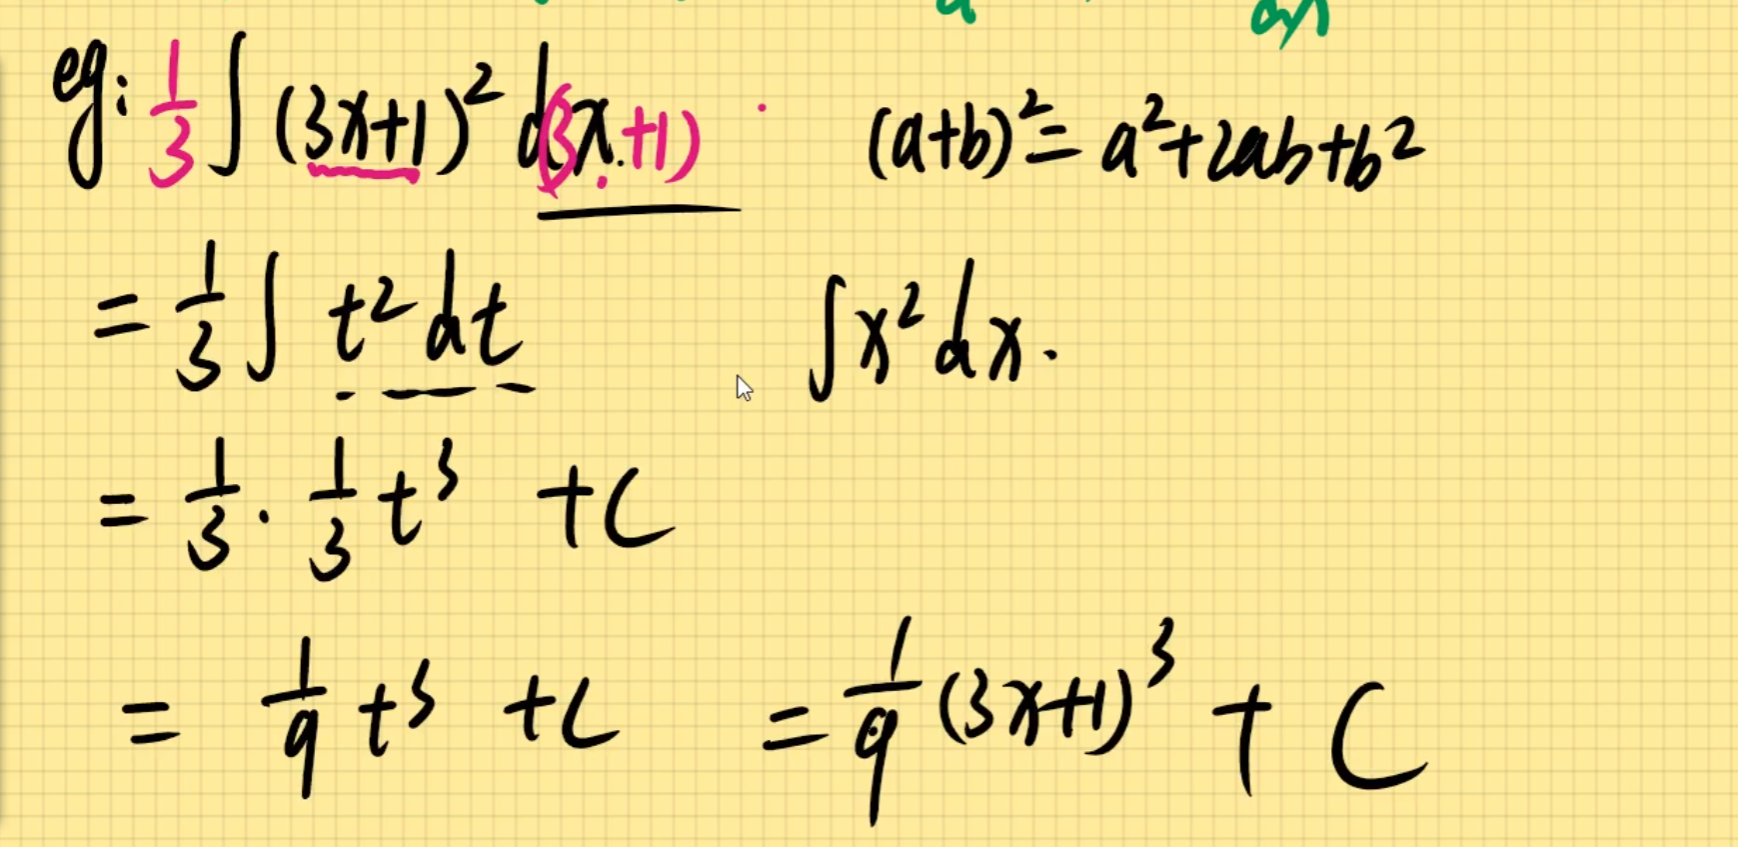 eg: 1/3 ∫ (3x+1)² d(3x+1)
(a+b)² = a²+2ab+b²
= 1/3 ∫ t² dt
∫x²dx.
= 1/3 · 1/3 t³ +C
= 1/9 t³ +C = 1/9 (3x+1)³ + C